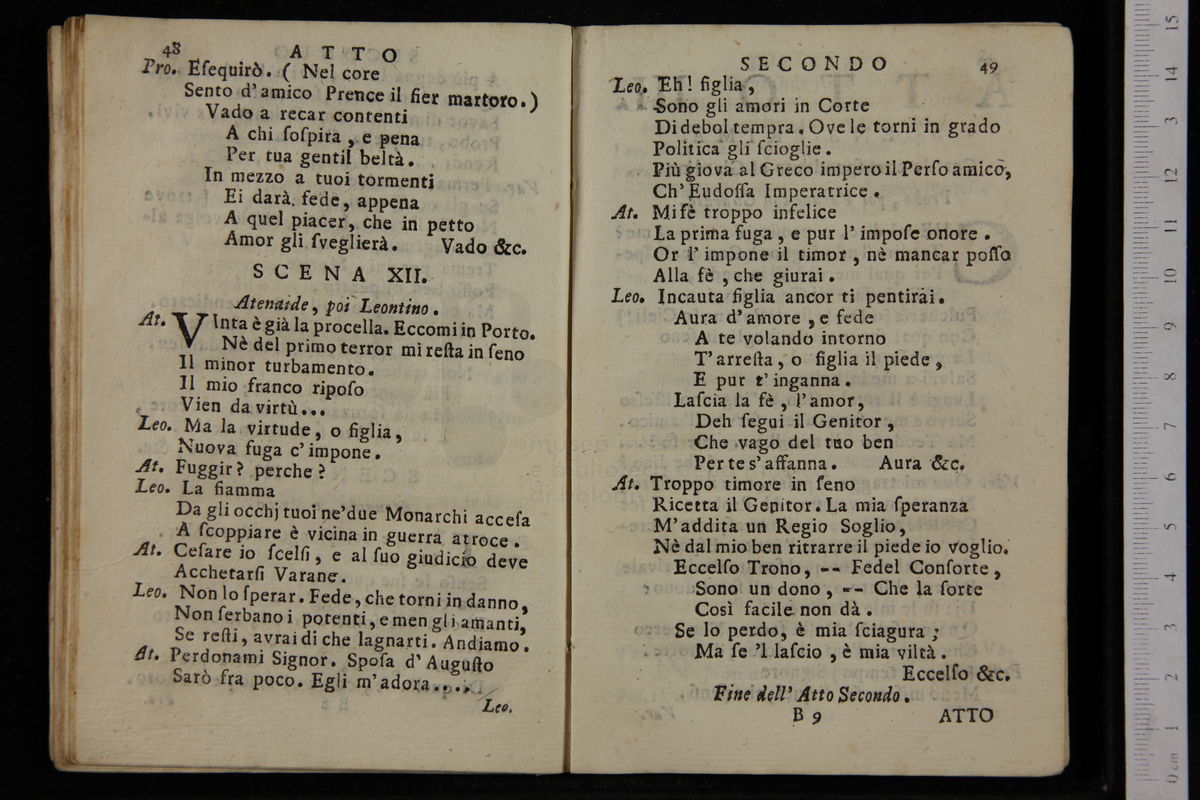 48 ATTO
Pro. Eſequirò. ( Nel core
Sento d'amico Prence il fier martoro.)
Vado a recar contenti
A chi ſoſpira, e pena
Per tua gentil beltà.
In mezzo a tuoi tormenti
Ei darà fede, appena
A quel piacer, che in petto
Amor gli ſveglierà. Vado &c.
SCENA XII.
Atenaide, poi Leontino.
At. VInta è già la procella. Eccomi in Porto.
Nè del primo terror mi reſta in ſeno
Il minor turbamento.
Il mio franco ripoſo
Vien da virtù...
Leo. Ma la virtude, o figlia,
Nuova fuga c'impone.
At. Fuggir? perche?
Leo. La fiamma
Da gli occhj tuoi ne'due Monarchi acceſa
A ſcoppiare è vicina in guerra atroce.
At. Ceſare io ſcelſi, e al ſuo giudicio deve
Acchetarſi Varane.
Leo. Non lo ſperar. Fede, che torni in danno,
Non ſerbano i potenti, e men gli amanti,
Se reſti, avrai di che lagnarti. Andiamo.
At. Perdonami Signor. Spoſa d'Auguſto
Sarò fra poco. Egli m'adora....
Leo.
SECONDO 49
Leo. Eh! figlia,
Sono gli amori in Corte
Di debol tempra. Ove le torni in grado
Politica gli ſcioglie.
Più giova al Greco impero il Perſo amico,
Ch'Eudoſſa Imperatrice.
At. Mi fè troppo infelice
La prima fuga, e pur l'impoſe onore.
Or l'impone il timor, nè mancar poſſo
Alla fè, che giurai.
Leo. Incauta figlia ancor ti pentirai.
Aura d'amore, e fede
A te volando intorno
T'arreſta, o figlia il piede,
E pur t'inganna.
Laſcia la fè, l'amor,
Deh ſegui il Genitor,
Che vago del tuo ben
Per te s'affanna. Aura &c.
At. Troppo timore in ſeno
Ricetta il Genitor. La mia ſperanza
M'addita un Regio Soglio,
Nè dal mio ben ritrarre il piede io voglio.
Eccelſo Trono, -- Fedel Conſorte,
Sono un dono, -- Che la ſorte
Così facile non dà.
Se lo perdo, è mia ſciagura;
Ma ſe 'l laſcio, è mia viltà.
Eccelſo &c.
Fine dell'Atto Secondo.
B 9 ATTO